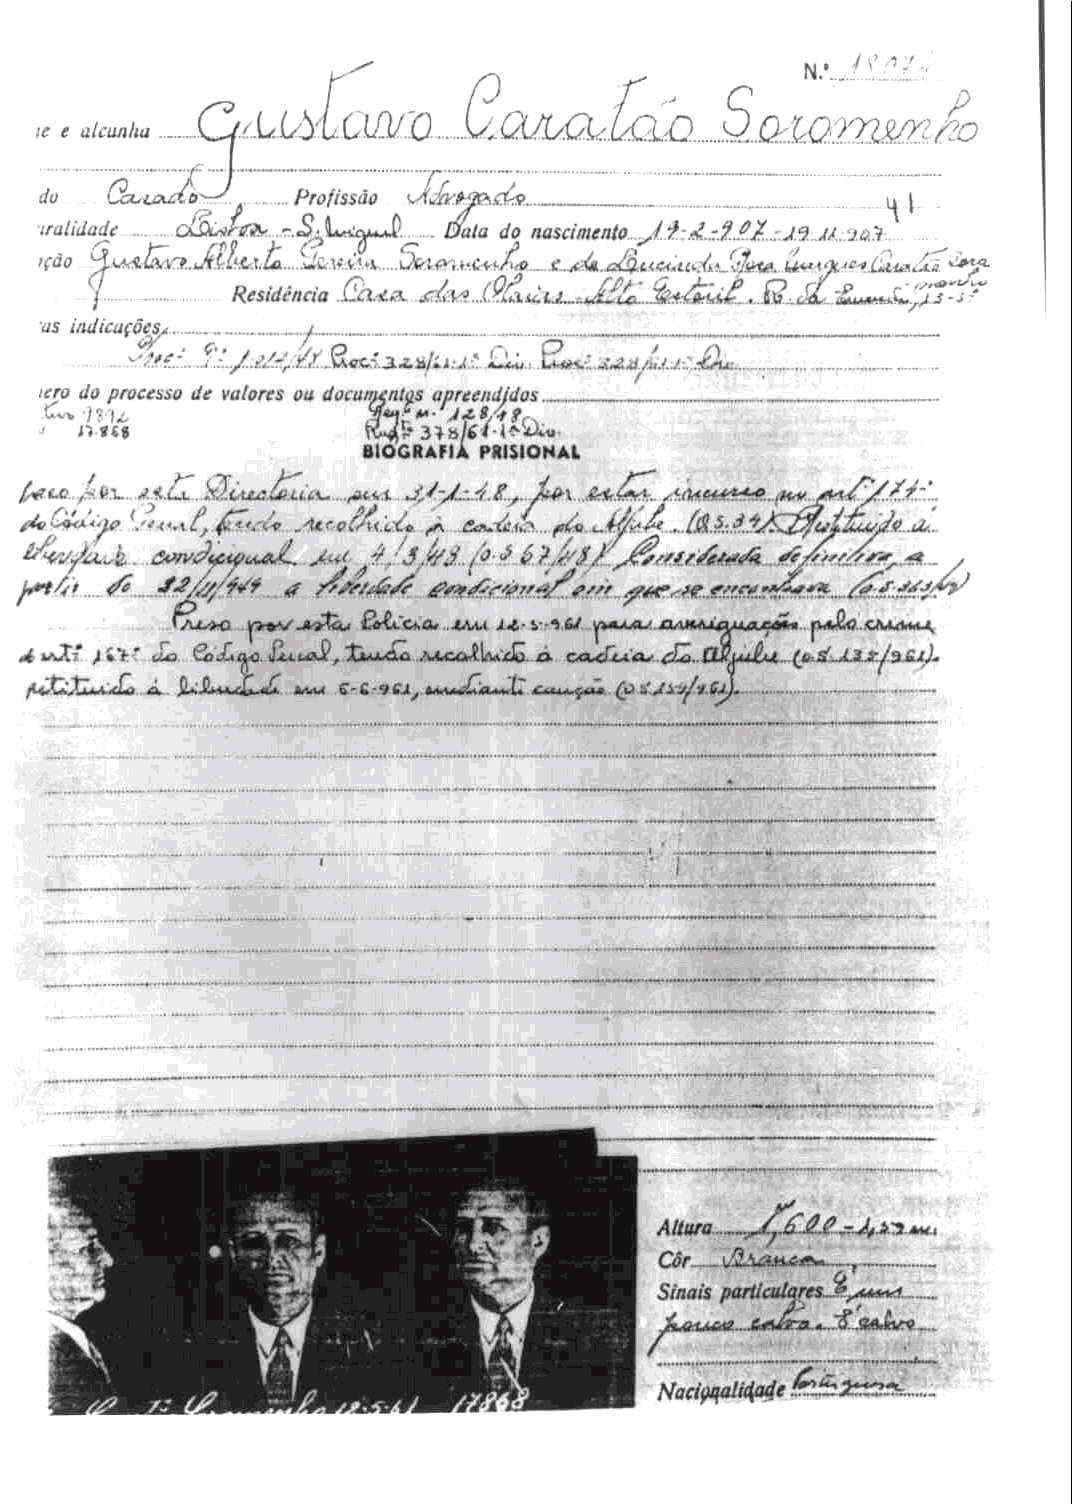 N.º 1807
e e alcunha Gustavo Caratão Soromenho
do Casado Profissão Advogado
41
uralidade Lisboa - S. Miguel Data do nascimento 19-2-907 - 19 11 907
ção Gustavo Alberto Pereira Soromenho e de Lucinda Rosa Marques Caratão Soro
menho
Residência Casa das Olaias - Alto Estoril. R. da 13-3º
as indicações
Proc.º 1.012/48 Proc.º 328/61-1ª Div. Proc.º 328/61-1ª Div.
ero do processo de valores ou documentos apreendidos
7892 Reg.º n.º 128/48
17.868 Reg.º 378/61-1ª Div.
BIOGRAFIA PRISIONAL
por esta Directoria em 31-1-48, por estar incurso no artº 174º
do Código Penal, tendo recolhido à cadeia do Aljube (O.S. 34). Restituido à
liberdade condicional em 4/3/48 (O.S 67/48) Considerada definitiva, a
partir de 22/11/949 a liberdade condicional em que se encontrava (O.S.363/
Preso por esta Policia em 12-5-961 para averiguações pelo crime
artº 167º do Código Penal, tendo recolhido à cadeia do Aljube (O.S 135/961).
restituido à liberdade em 6-6-961, mediante caução (O S 159/961).
Altura 1,600 - 1,59 m.
Côr Branca
Sinais particulares É um
pouco calvo. É calvo
Nacionalidade Portuguesa
Soromenho 12-5-61 17868